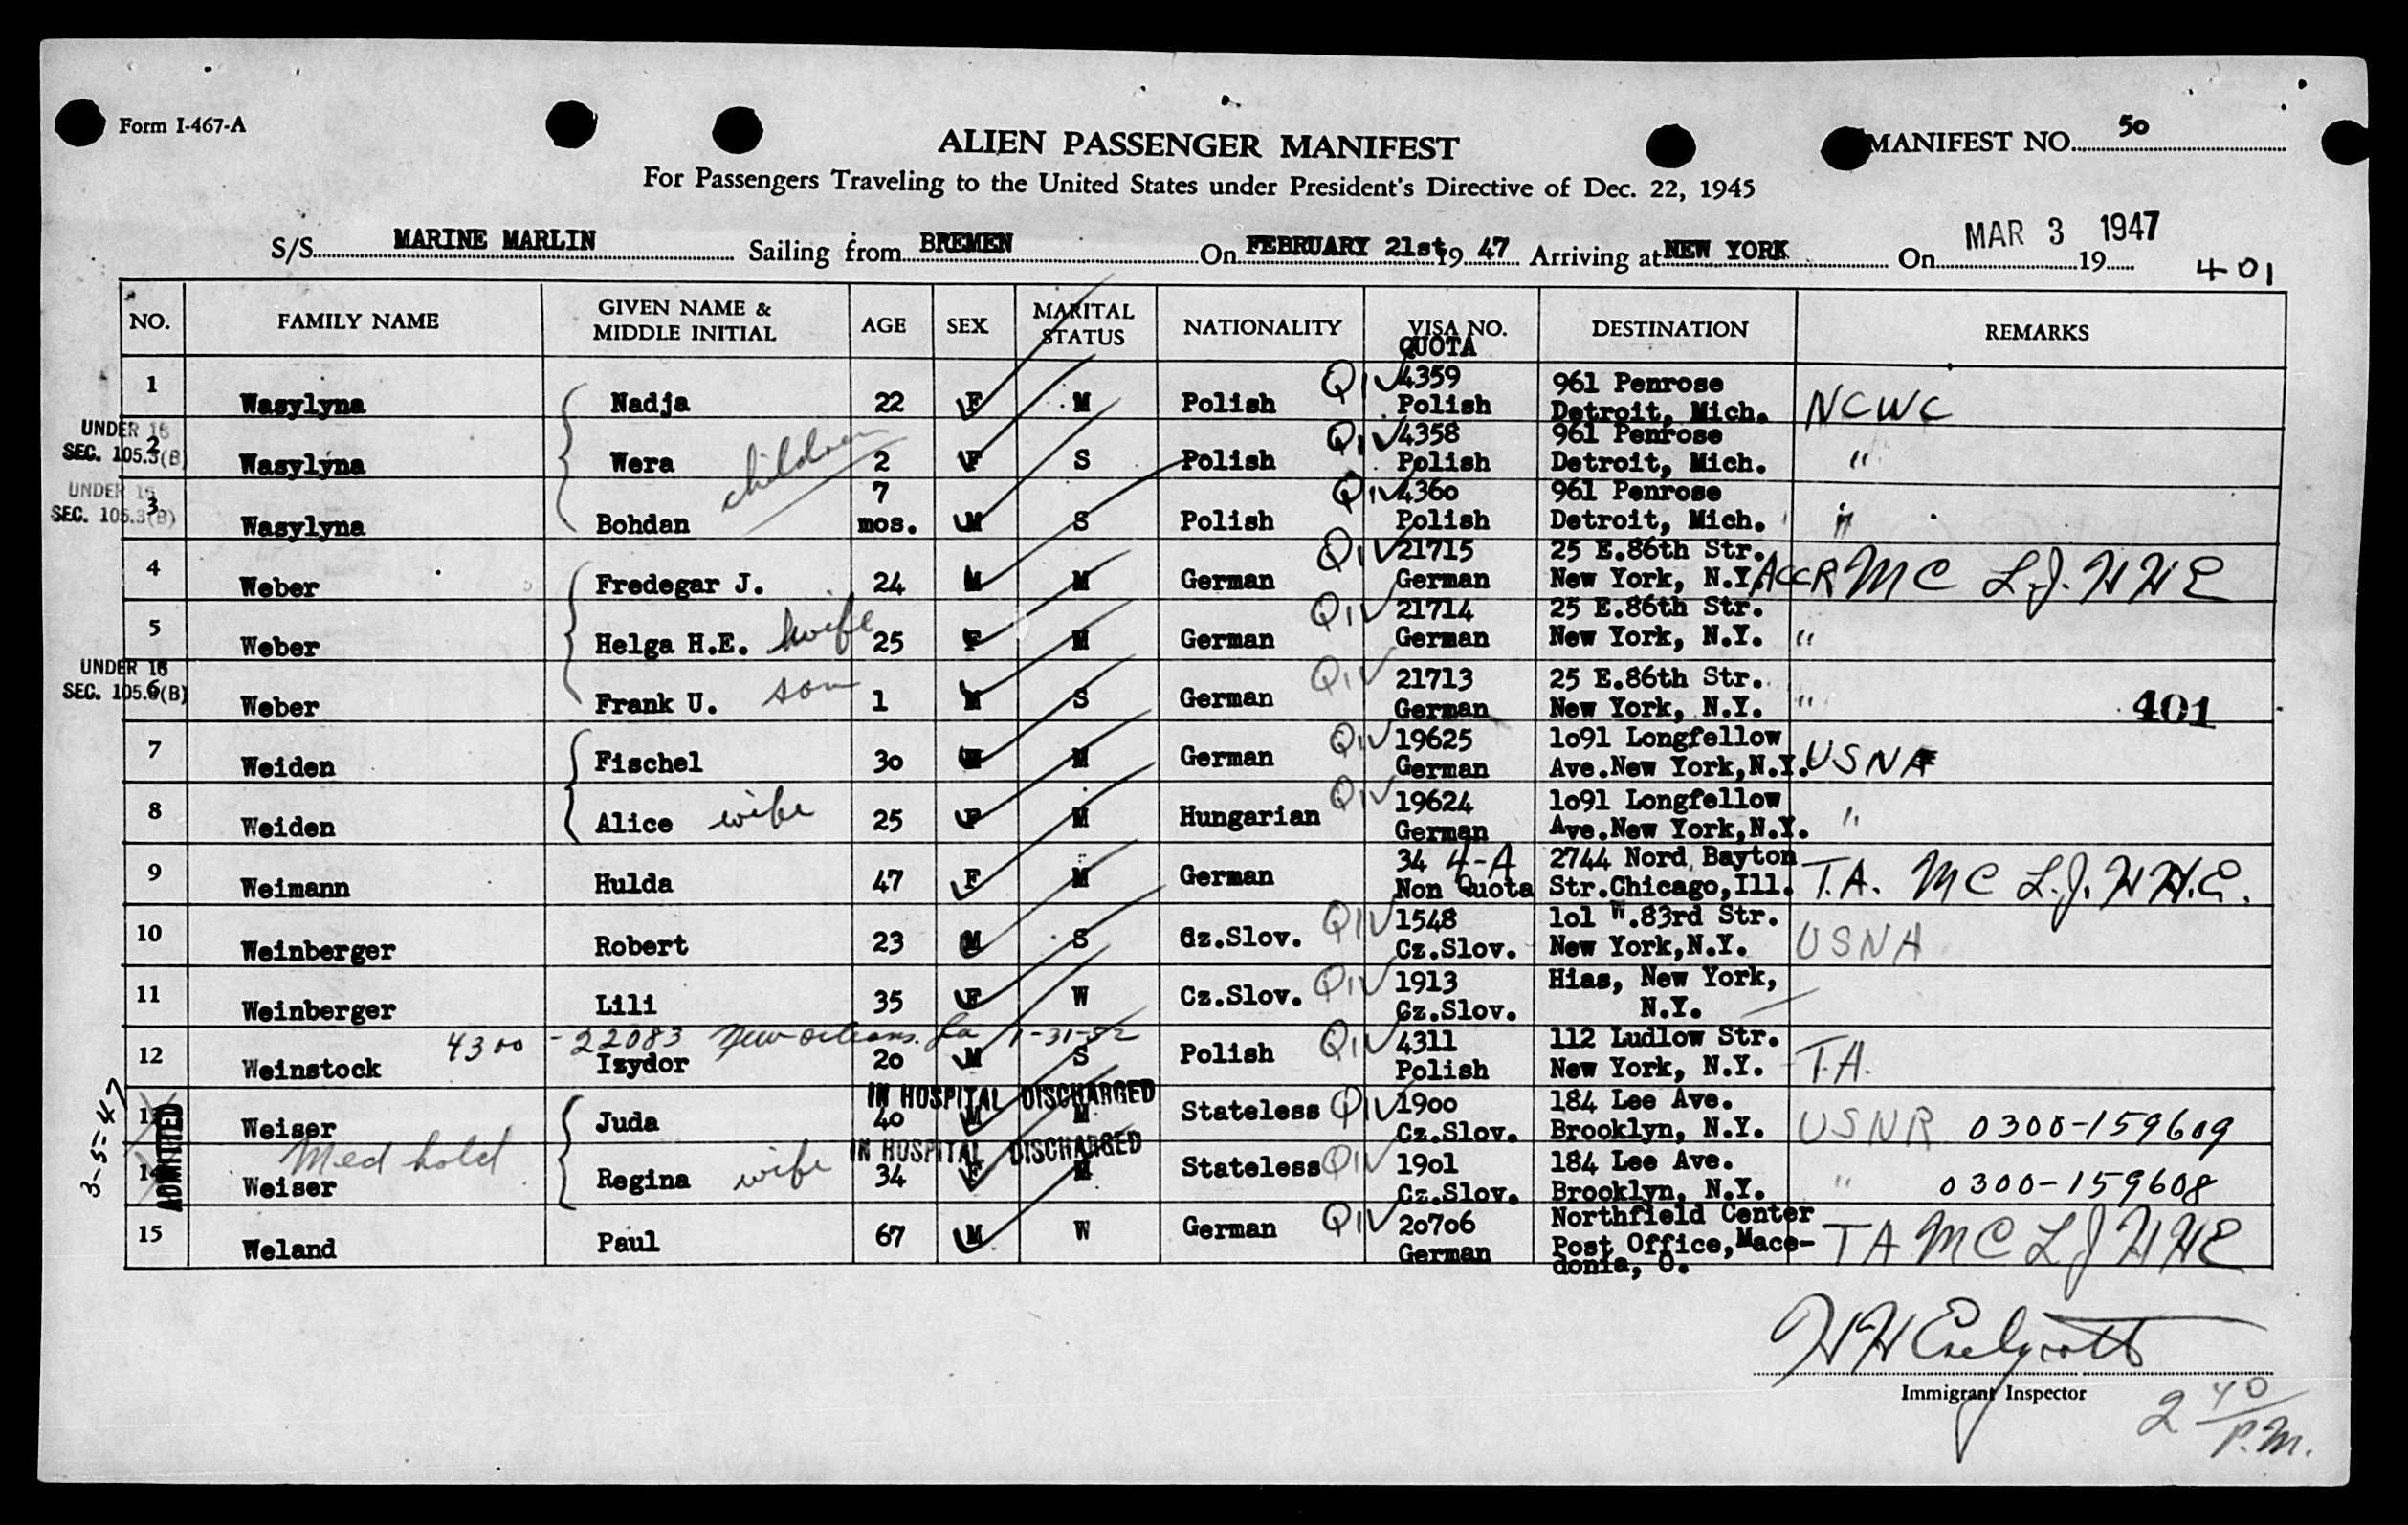 Form I-467-A
ALIEN PASSENGER MANIFEST
MANIFEST NO. 50
For Passengers Traveling to the United States under President's Directive of Dec. 22, 1945
S/S MARINE MARLIN Sailing from BREMEN On FEBRUARY 21st 19 47 Arriving at NEW YORK On MAR 3 1947 19
401
NO. FAMILY NAME GIVEN NAME & MIDDLE INITIAL AGE SEX MARITAL STATUS NATIONALITY VISA NO. QUOTA DESTINATION REMARKS
1 Wasylyna Nadja 22 F M Polish QIV 4359 Polish 961 Penrose Detroit, Mich. NCWC
UNDER 16 SEC. 105.3(B)
2 Wasylyna Wera children 2 F S Polish QIV 4358 Polish 961 Penrose Detroit, Mich. "
UNDER 16 SEC. 105.3(B)
3 Wasylyna Bohdan 7 mos. M S Polish QIV 4360 Polish 961 Penrose Detroit, Mich. "
4 Weber Fredegar J. 24 M M German QIV 21715 German 25 E.86th Str. New York, N.Y. ACCR MC L.J. HHE
5 Weber Helga H.E. wife 25 F M German QIV 21714 German 25 E.86th Str. New York, N.Y. "
UNDER 16 SEC. 105. (B)
6 Weber Frank U. son 1 M S German QIV 21713 German 25 E.86th Str. New York, N.Y. "
401
7 Weiden Fischel 30 M M German QIV 19625 German 1o91 Longfellow Ave.New York,N.Y. USNA
8 Weiden Alice wife 25 F M Hungarian QIV 19624 German 1o91 Longfellow Ave.New York,N.Y. "
9 Weimann Hulda 47 F M German 34 4-A Non Quota 2744 Nord Bayton Str.Chicago,Ill. T.A. MC L.J. HH.E.
10 Weinberger Robert 23 M S Cz.Slov. QIV 1548 Cz.Slov. 1o1 W.83rd Str. New York,N.Y. USNA
11 Weinberger Lili 35 F W Cz.Slov. QIV 1913 Cz.Slov. Hias, New York, N.Y.
4300 - 22083 New Orleans. La 1-31-52
12 Weinstock Izydor 20 M S Polish QIV 4311 Polish 112 Ludlow Str. New York, N.Y. T.A.
IN HOSPITAL DISCHARGED
13 Weiser Juda 40 M M Stateless QIV 1900 Cz.Slov. 184 Lee Ave. Brooklyn, N.Y. USNR 0300-159609
3-5-47 ADMITTED
Med hold
IN HOSPITAL DISCHARGED
14 Weiser Regina wife 34 F M Stateless QIV 19o1 Cz.Slov. 184 Lee Ave. Brooklyn, N.Y. " 0300-159608
15 Weland Paul 67 M W German QIV 20706 German Northfield Center Post Office,Mace-donia, O. TA MC LJ HHE
Immigrant Inspector
2 40 P.M.